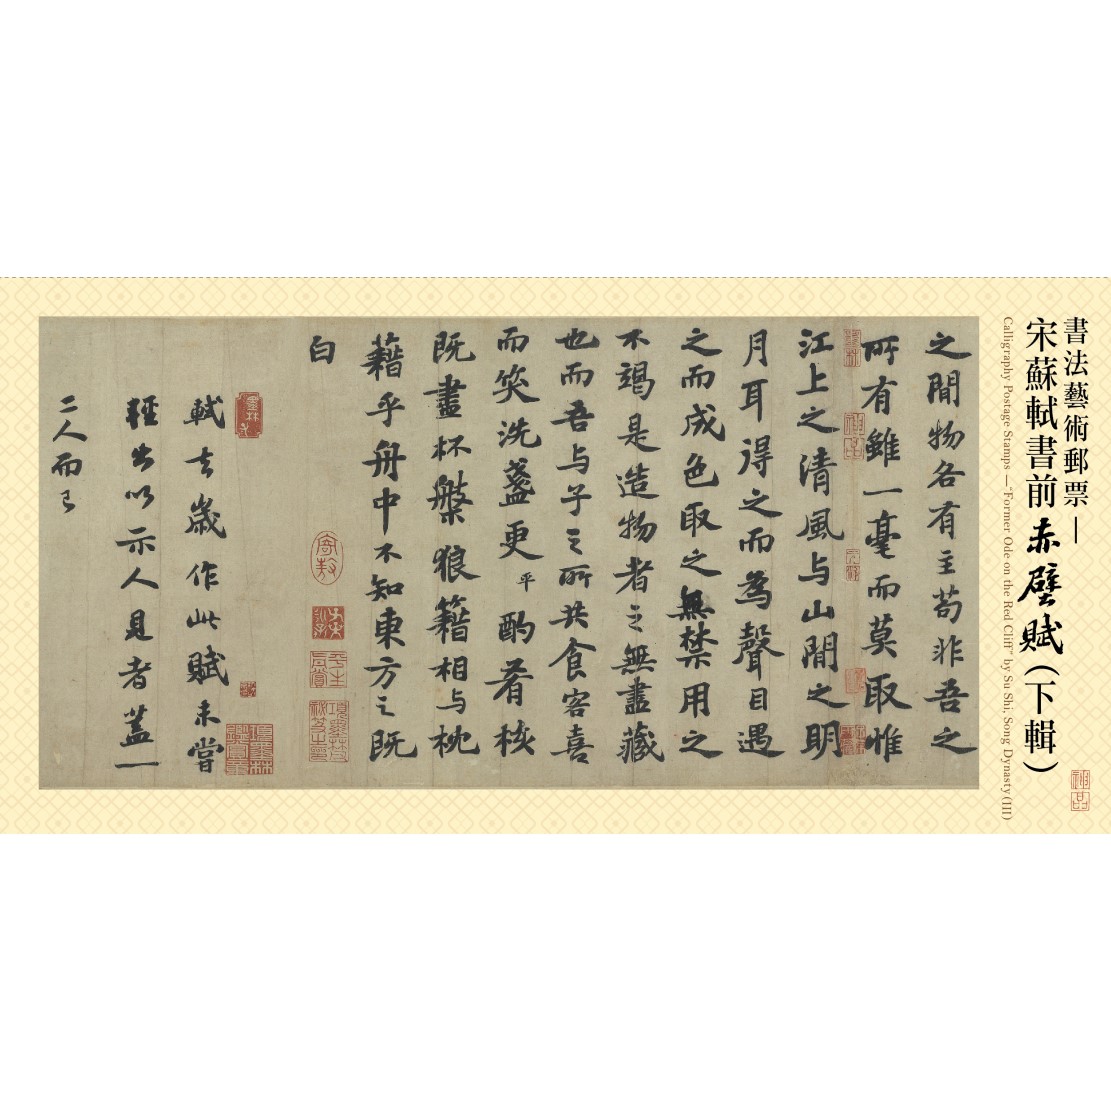 書法藝術郵票—
宋蘇軾書前赤壁賦(下輯)
Calligraphy Postage Stamps —"Former Ode on the Red Cliff" by Su Shi, Song Dynasty (III)
神品
之間物各有主苟非吾之
所有雖一毫而莫取惟
江上之清風与山間之明
月耳得之而為聲目遇
之而成色取之無禁用之
不竭是造物者之無盡藏
也而吾与子之所共食客喜
而笑洗盞更平酌肴核
既盡杯槃狼籍相与枕
藉乎舟中不知東方之既
白
軾去歲作此賦未嘗
輕出以示人見者蓋一
二人而已
神品